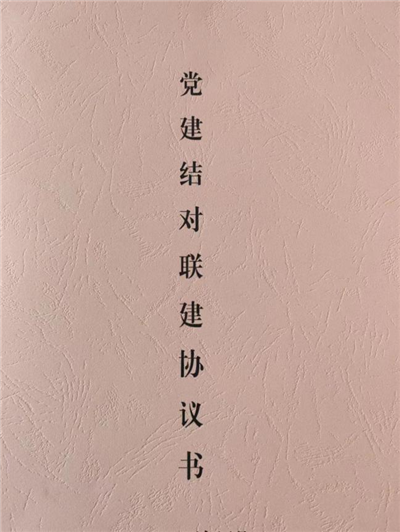 党建结对联建协议书